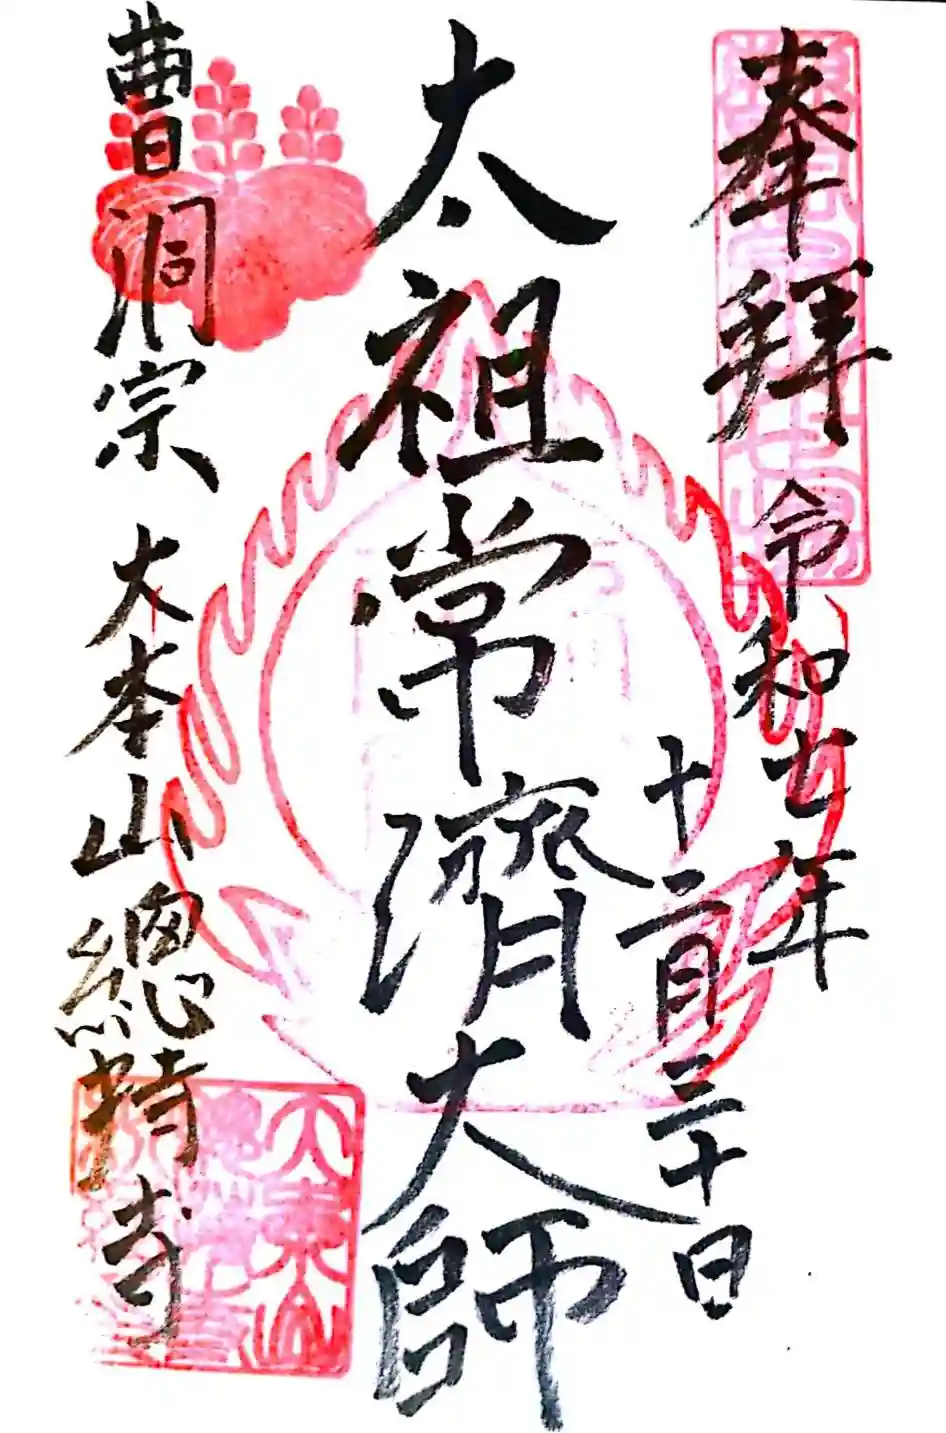 奉拝
令和七年
十二月三十日
太祖常濟大師
曹洞宗 大本山總持寺